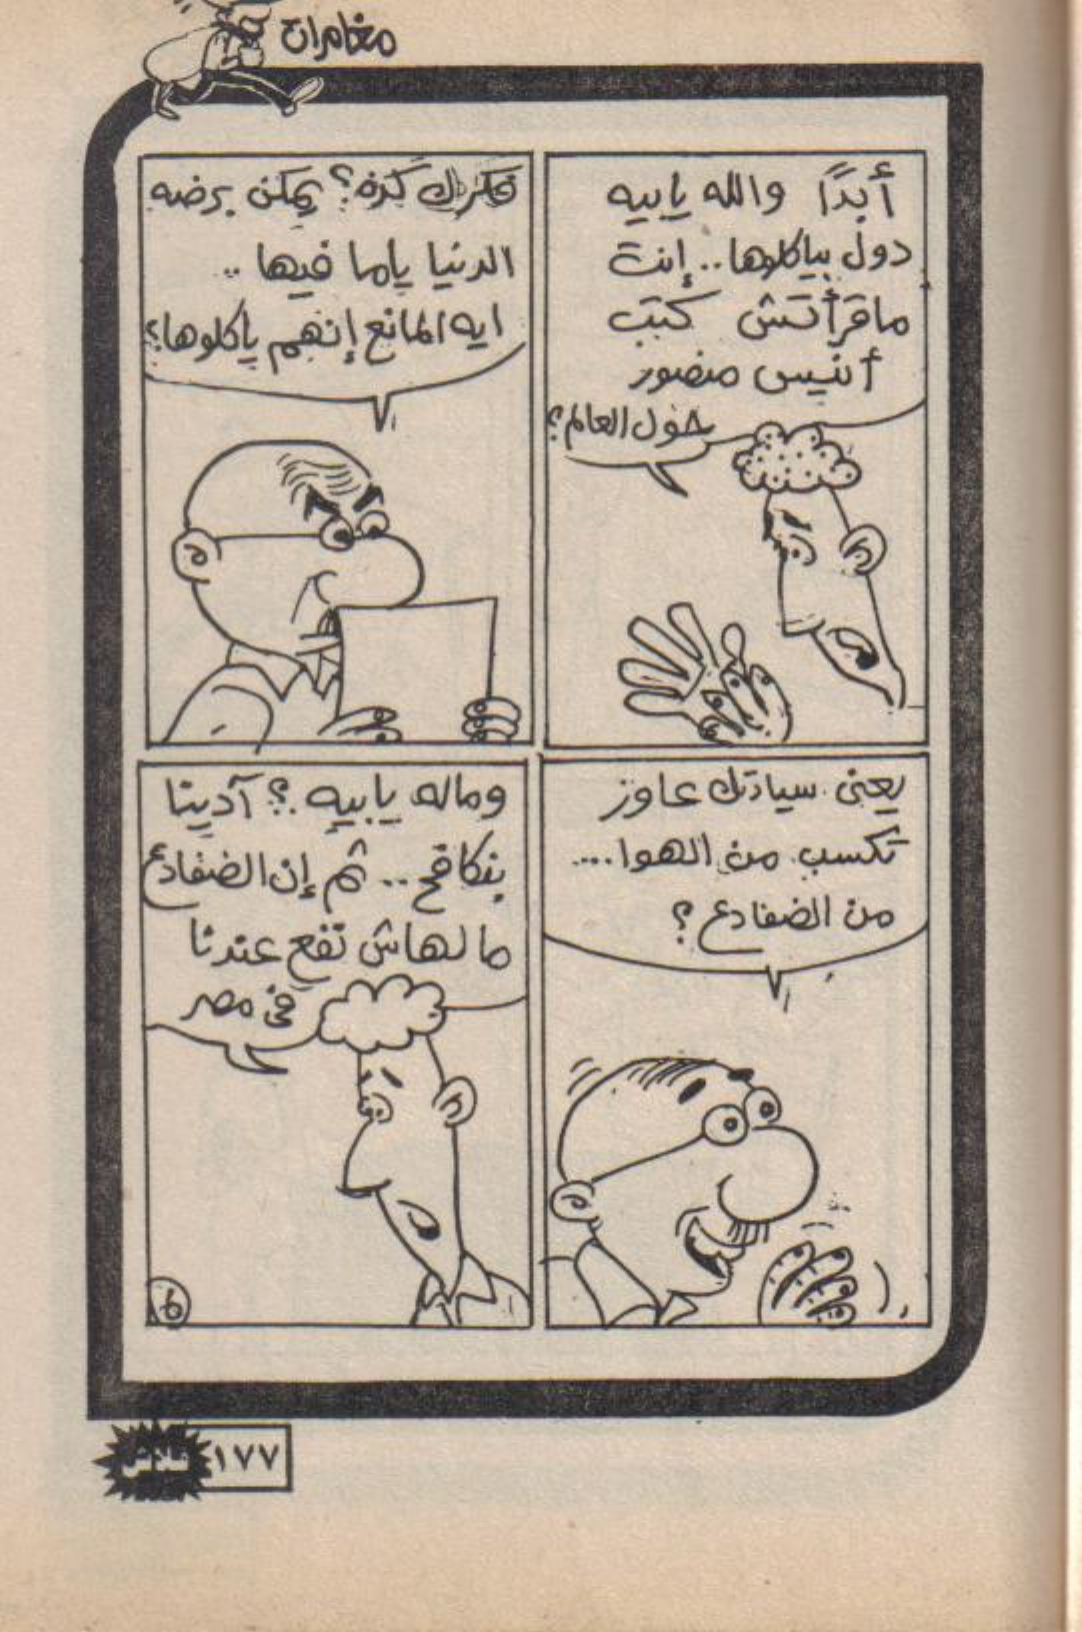 مغامرات
أبدًا والله يا بيه
دول بياكلوها.. إنت
ماقرأتش كتب
أنيس منصور
حول العالم؟
فكرك كده؟ يمكن برضه
الدنيا ياما فيها ..
ايه المانع إنهم ياكلوها؟
يعنى سيادتك عاوز
تكسب من الهوا....
من الضفادع؟
وماله يا بيه؟ آدينا
بنكافح.. ثم إن الضفادع
مالهاش نفع عندنا
فى مصر
6
١٧٧
فلاش